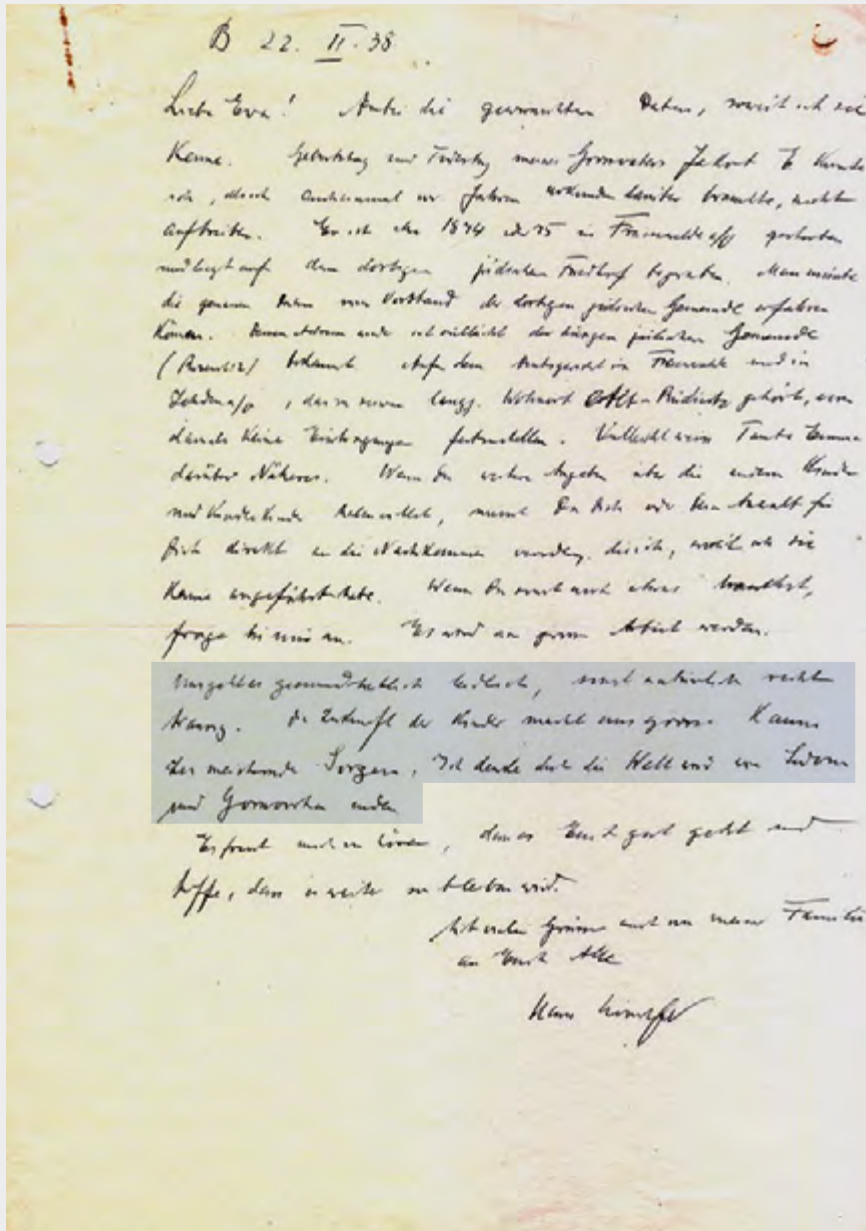 B 22. II. 38
Liebe Eva! Anbei die gewünschten Daten, soweit ich sie
kenne. Geburtstag und Todestag meines Grossvaters Jakob konnte
ich, obwohl auch einmal vor Jahren Urkunden darüber brauchte, nicht
auftreiben. Er ist 1874 oder 75 in gestorben
und liegt auf dem dortigen jüdischen Friedhof begraben. Man müsste
die genauen Daten vom Vorstand der dortigen jüdischen Gemeinde erfahren
können. Dessen Adresse vielleicht der jüdischen Gemeinde
bekannt. Auf dem Amtsgericht in und in
, das zu seinem langj. Wohnort Alt- gehört, waren
damals keine Eintragungen festzustellen. Vielleicht weiss Tante Emma
darüber Näheres. Wenn Du weitere Angaben über die anderen Kinder
und Kindeskinder haben willst, musst Du Dich oder Dein Anwalt für
Dich direkt an die Nachkommen wenden, die ich, soweit ich sie
kenne angeführt habe. Wenn Du sonst noch etwas brauchst,
frage bei mir an. Es wird gern erledigt werden.
Uns geht es gesundheitlich leidlich, sonst natürlich recht
traurig. Die Zukunft der Kinder macht uns grosse kaum
zu meisternde Sorgen. Ich denke doch die Welt wird wie Sodom
und Gomorrha enden
Es freut mich zu hören, dass es Euch gut geht und
hoffe, dass es weiter so bleiben wird.
Mit vielen Grüssen auch von meiner Familie
an Euch Alle
Hans